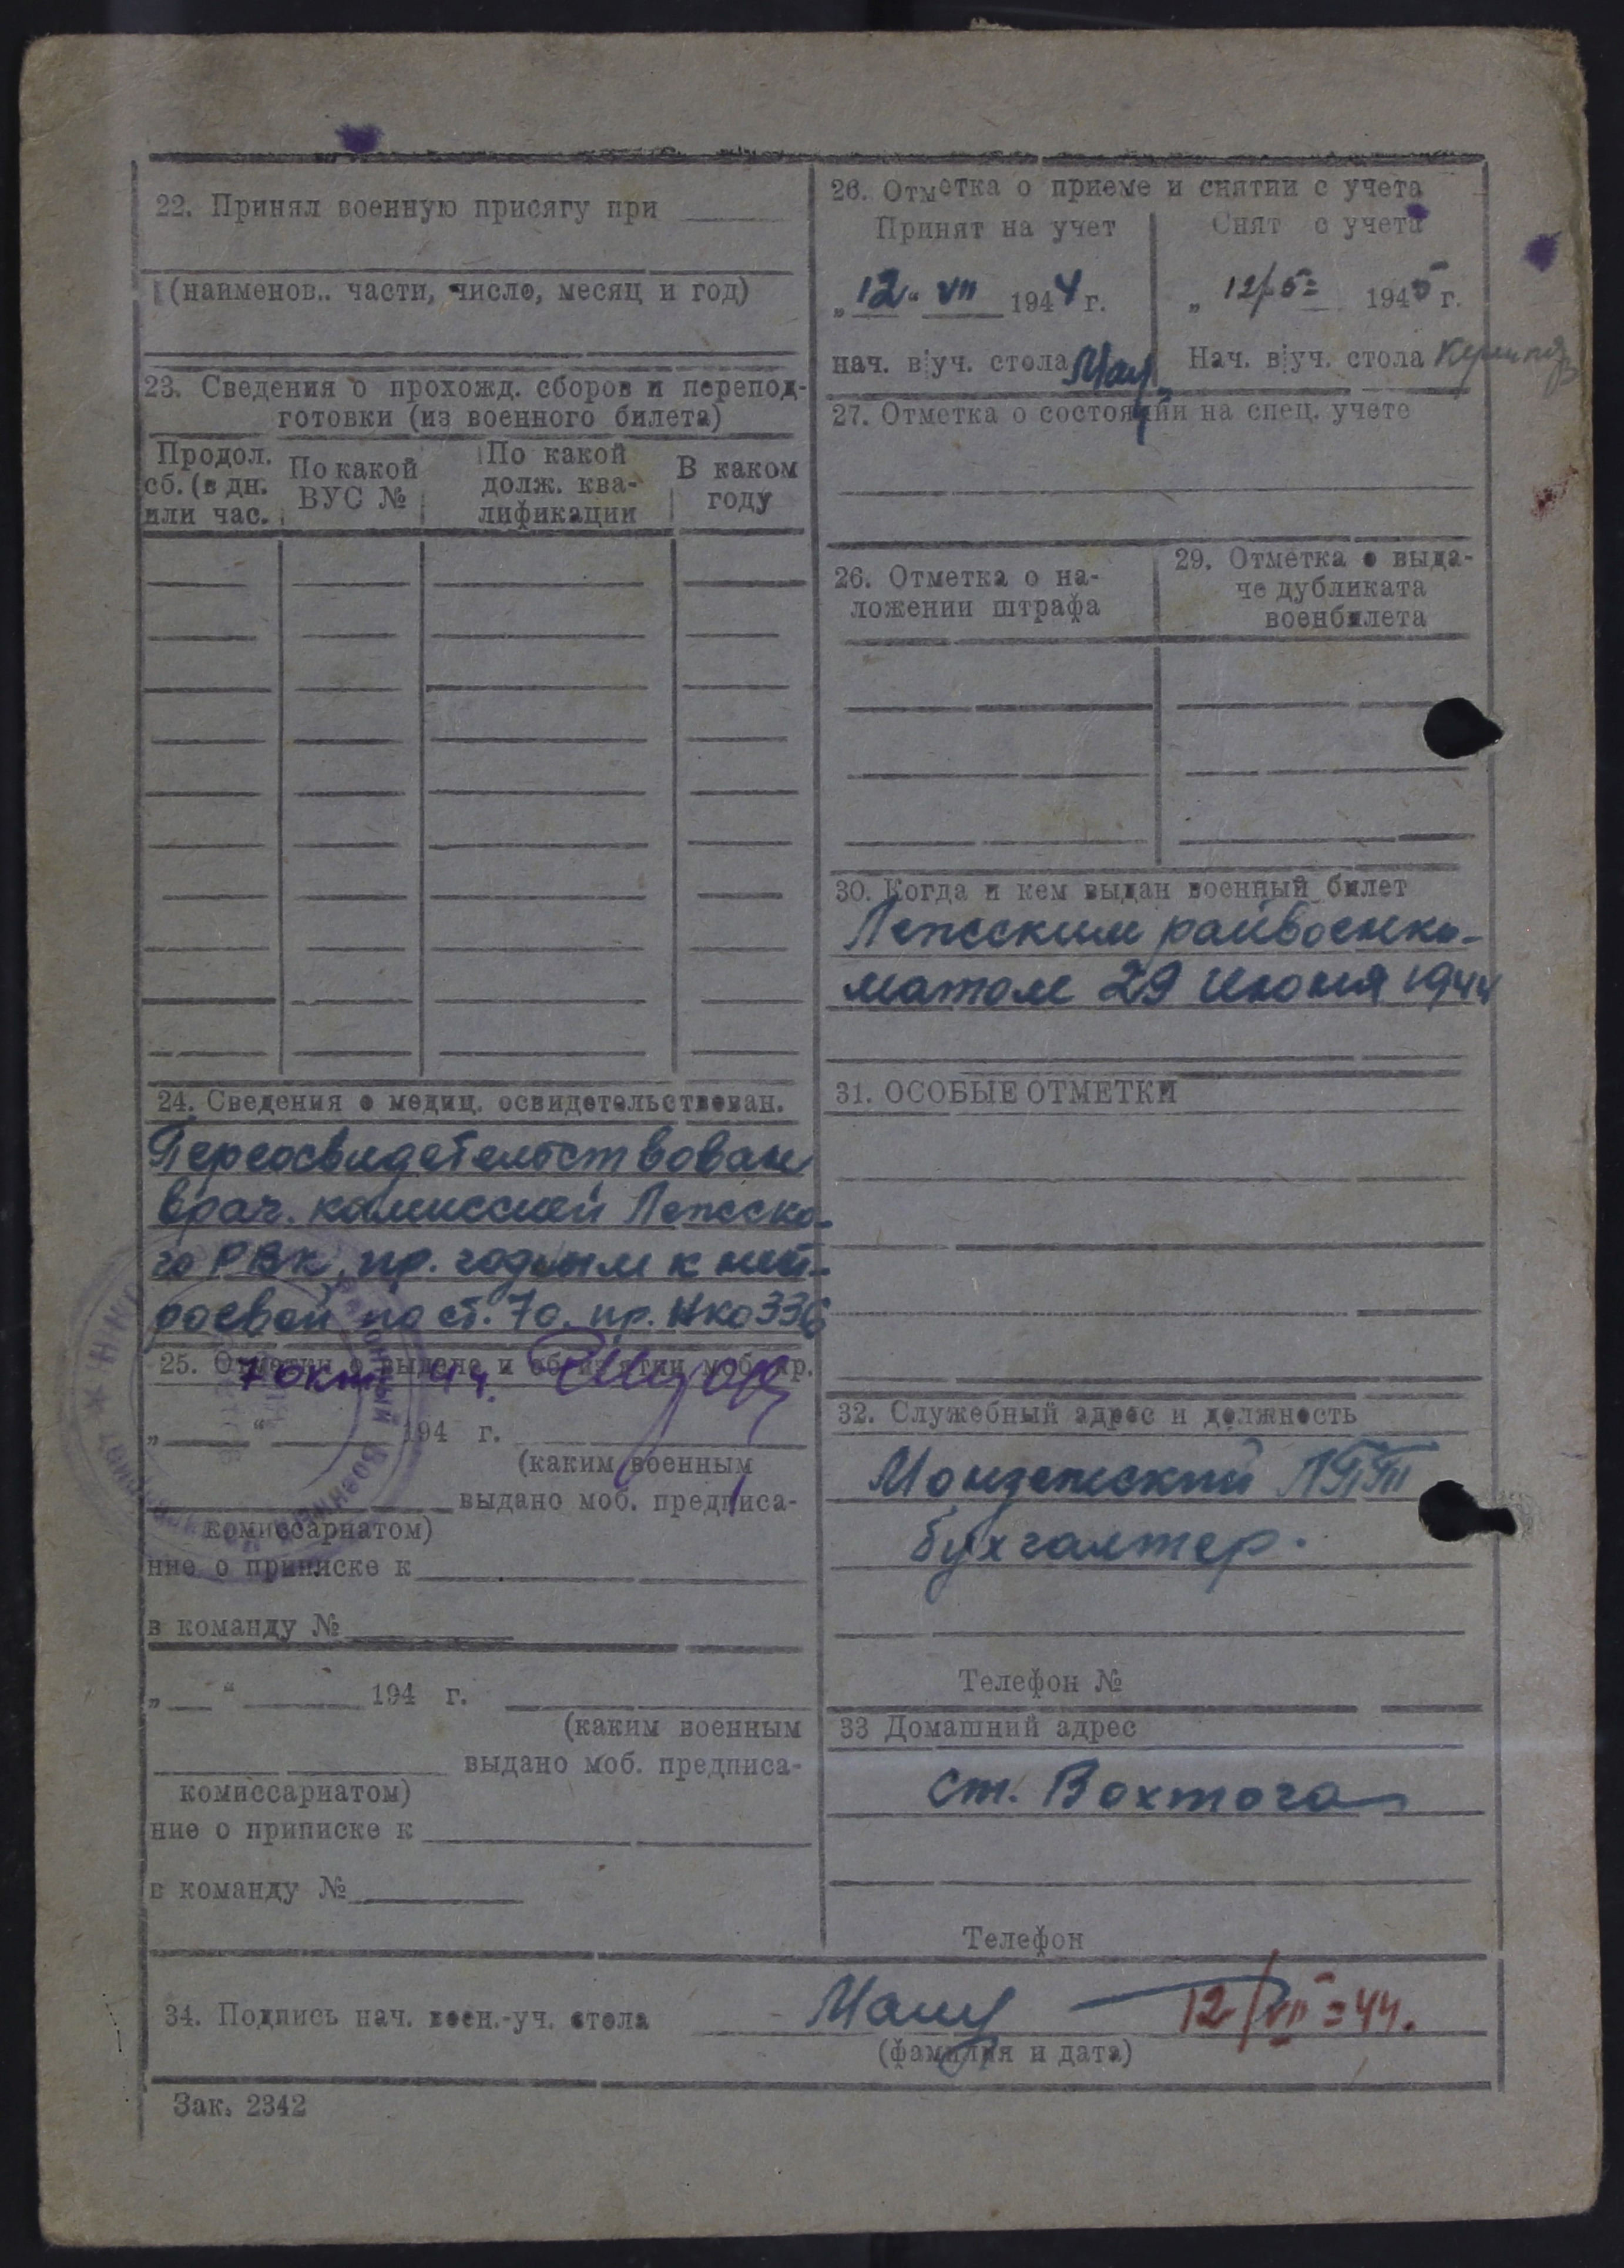 22. Принял военную присягу при
(наименов.. части, число, месяц и год)
23. Сведения о прохожд. сборов и перепод-
готовки (из военного билета)
Продол.
сб. (в дн.
или час.
По какой
ВУС №
По какой
долж. ква-
лификации
В каком
году
24. Сведения о медиц. освидетельствован.
Переосвидетельствован
врач. комиссией Лежско-
го РВК, пр. годным к нест-
роевой по ст. 7о. пр. НКО 336
25. Отметки о выдаче и об изъятии моб. пр.
7 окт 44.
„ “ 194 г.
(каким военным
выдано моб. предписа-
комиссариатом)
ние о приписке к
в команду №
„ “ 194 г.
(каким военным
выдано моб. предписа-
комиссариатом)
ние о приписке к
в команду №
26. Отметка о приеме и снятии с учета
Принят на учет
„12“ VII 1944 г.
нач. в уч. стола
Снят с учета
„ 12/5 1945 г.
Нач. в уч. стола
27. Отметка о состоянии на спец. учете
26. Отметка о на-
ложении штрафа
29. Отметка о выда-
че дубликата
военбилета
30. Когда и кем выдан военный билет
Лежским райвоенко-
матом 29 июня 1944
31. ОСОБЫЕ ОТМЕТКИ
32. Служебный адрес и должность
Монзенский ЛТП
бухгалтер.
Телефон №
33 Домашний адрес
ст. Вохтога
Телефон
34. Подпись нач. воен.-уч. стола 12/VII-44.
(фамилия и дата)
Зак. 2342